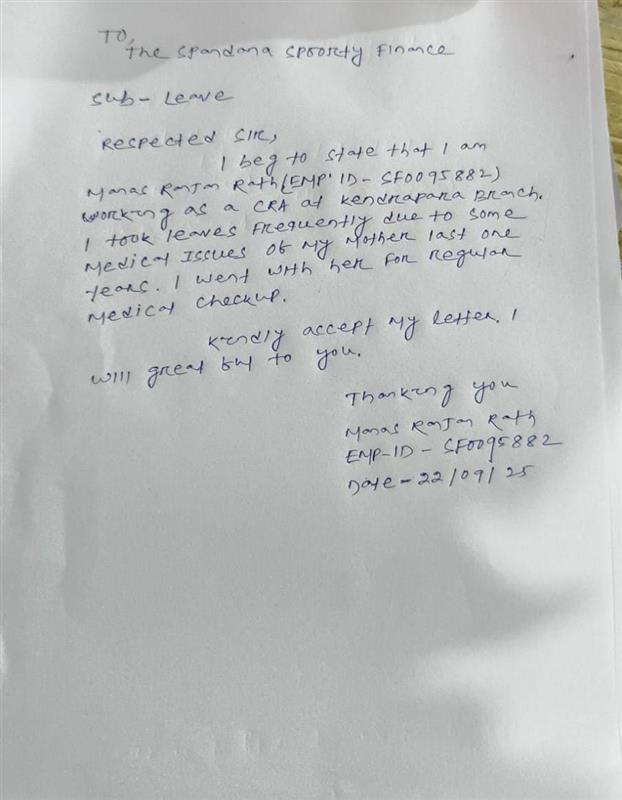 TO,
The Spandana Spoorty Finance
Sub- Leave
Respected Sir,
I beg to state that I am
Manas Ranjan Rath (EMP' ID - SF0095882)
working as a CRA at Kendrapara Branch.
I took leaves Frequently due to some
Medical Issues of My Mother last one
years. I went with her for regular
Medical checkup.
Kindly accept My letter. I
will great ful to you.
Thanking you
Manas Ranjan Rath
EMP-ID - SF0095882
Date - 22/09/25